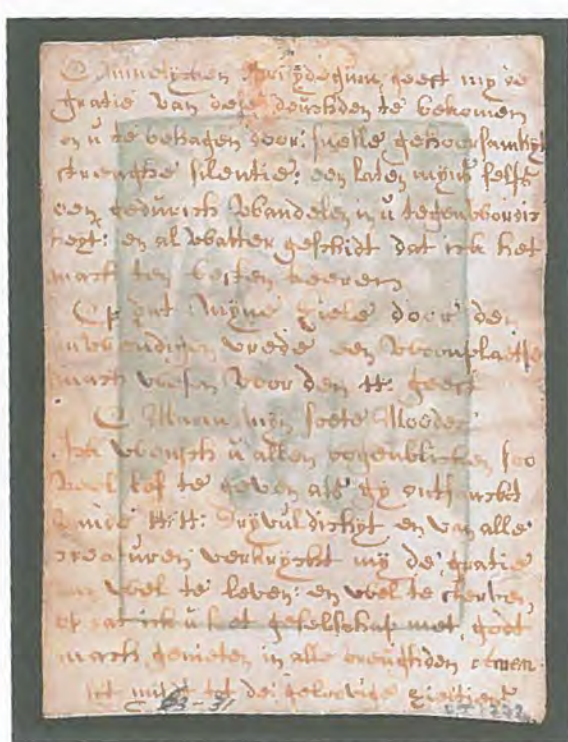 O Minnelycken Bruydegum geeft my de
gratie van dese deuchden te bekomen
en u te behagen door: snelle gehoorsamhyt
strenghe silentie: een laten myns selfs
een gedurich wandelen in u tegenwoordic
heyt: en al watter geschidt dat ick het
mach ten besten keeren
Op dat myne ziele door den
inwendigen vrede een woonplaetse
mach wesen voor den H: geest
O Maria myn soete Moeder
Ick wensch u allen oogenblicken soo
veel lof te geven als gy onthanckt
H:H: Dryvuldichyt en van alle
creaturen verkryckt my de gratie
van wel te leven: en wel te sterven,
op dat ick u het geselschap met godt
mach genieten in alle vreughden amen
tot de geloovige